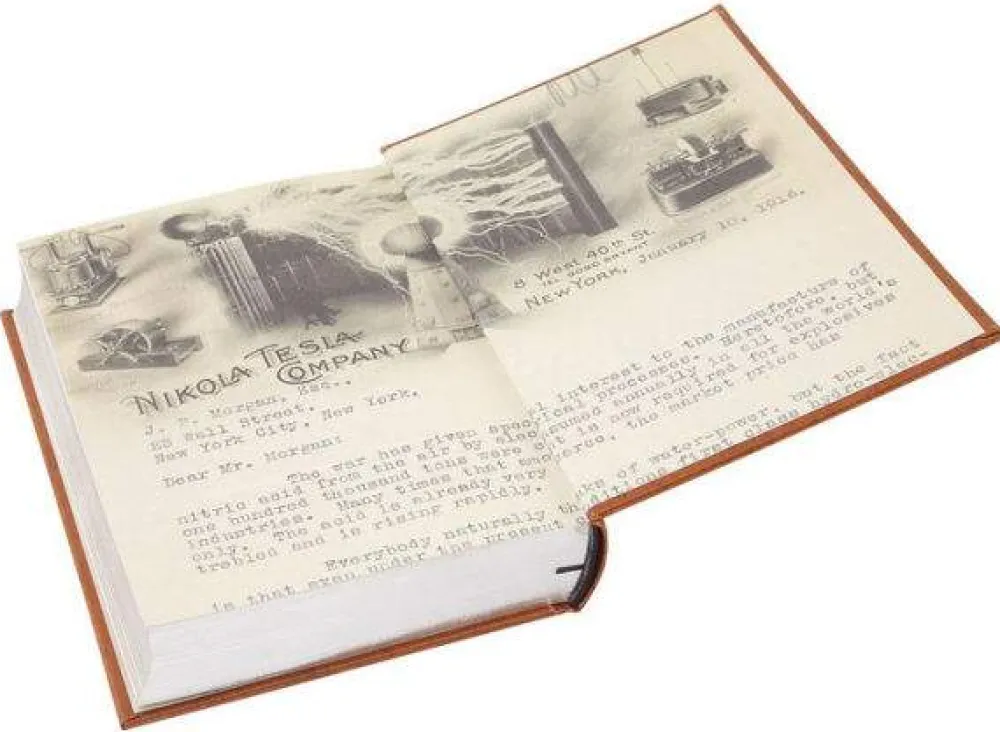 NIKOLA TESLA
COMPANY
8 West 40th St.
NEW YORK, January 10, 1916.
J. P. Morgan, Esq.,
23 Wall Street,
New York City, New York.
Dear Mr. Morgan:
The war has given special interest to the manufacture of
nitric acid from the air by processes. Heretofore, but
one hundred thousand tons were consumed annually in all the world's
industries. Many times that is now required for explosives
only. The acid is already very the market price has
trebled and is rising rapidly.
Everybody naturally of water-power, but the fact
is that even under the present the first class hydro-elec-